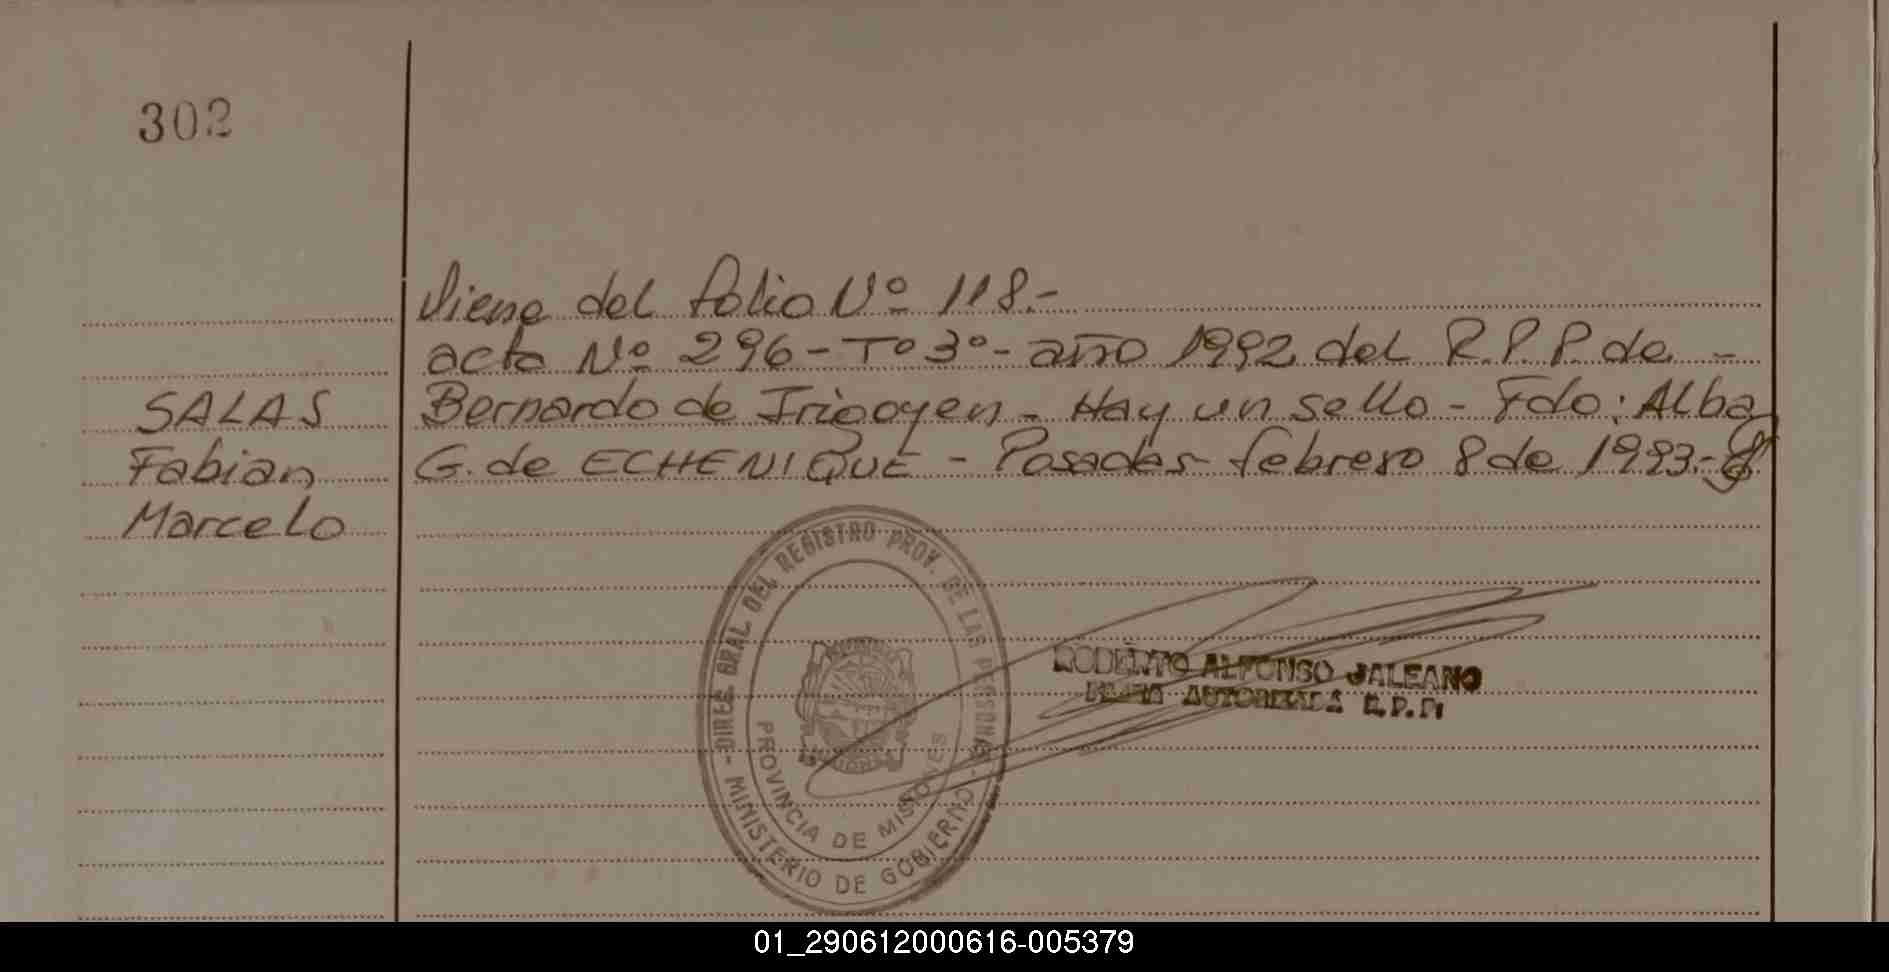 302
Viene del folio Nº 118.-
acta Nº 296 - Tº 3º - año 1992 del R.P.P. de -
SALAS
Bernardo de Irigoyen - Hay un sello - Fdo: Alba
Fabian
G. de ECHENIQUE - Posadas febrero 8 de 1993.-
Marcelo
- DIREC GRAL. DEL REGISTRO PROV. DE LAS PERSONAS -
MINISTERIO DE GOBIERNO
PROVINCIA DE MISIONES
ROBERTO ALFONSO JALEANO
FIRMA AUTORIZADA R.P.P.
01_290612000616-005379